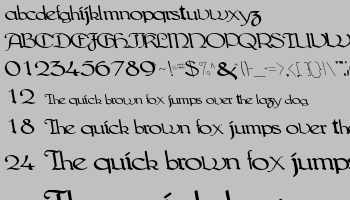 abcdefghijklmnopqrstuvwxyz
ABCDEFGHIJKLMNOPQRSTUVW
0123456789
12 The quick brown fox jumps over the lazy dog
18 The quick brown fox jumps over the
24 The quick brown fox jumps